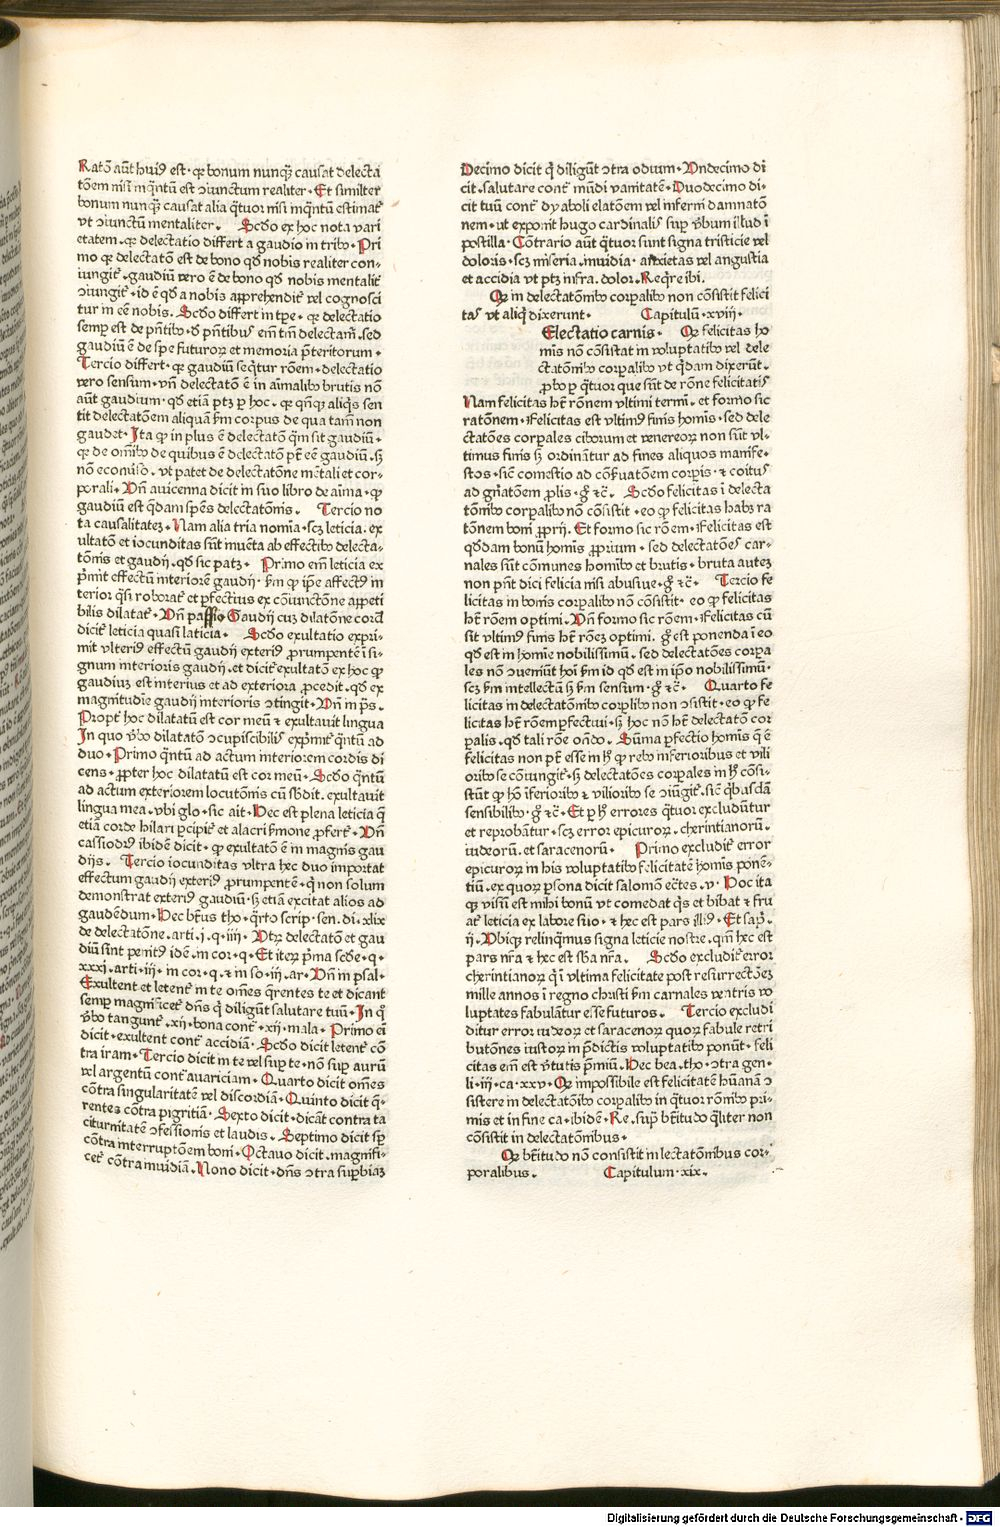 Ratō aūt huiꝰ est · qꝛ bonum nunqᷓ causat delecta
tōem nisi inqͫntū est ↄiunctum realiter · Et similiter
bonum nunqᷓ causat alia qͣtuor nisi inqͫntū estimat᷑
vt ↄiunctū mentaliter · Scd̄o ex hoc nota vari
etatem · qꝛ delectatio differt a gaudio in tribꝰ · Pri
mo qꝛ delectatō est de bono qd̄ nobis realiter con-
iungit᷑ · gaudiū vero ē de bono qd̄ nobis mentalit᷑
ↄiungit᷑ · id ē qd̄ a nobis apprehendit᷑ vel cognosci
tur in eē nobis · Scd̄o differt in tpe · qꝛ delectatio
semꝑ est de pn̄tibꝰ · d̄ pn̄tibus em̄ tm̄ delectam᷑ · sed
gaudiū ē de spe futuroꝝ et memoria p̄teritorum ·
Tercio differt · qꝛ gaudiū seqͥtur rōem · delectatio
vero sensum · vn̄ delectatō ē in aīmalibꝰ brutis nō
aūt gaudium · qd̄ etiā ptꝫ ꝑ hoc · qꝛ qn̄qꝫ aliqͥs sen
tit delectatōem aliquā ẜm corpus de qua tam̄ non
gaudet · Ita ꝙ in plus ē delectatō qͫm sit gaudiū ·
qꝛ de om̄ibꝰ de quibus ē delectatō pt̄ eē gaudiū · sꝫ
nō econuerso · vt patet de delectatōne mētali et cor-
porali · Vn̄ auicenna dicit in suo libro de aīma · ꝙ
gaudiū est qͣdam spēs delectatōnis · Tercio no
ta causalitateꝫ · Nam alia tria nomīa · scꝫ leticia · ex
ultatō et iocunditas sūt inuēta ab effectibꝰ delecta-
tōnis et gaudij · qd̄ sic patꝫ · Primo em̄ leticia ex
pͥmit effectū interiorē gaudij · ẜm ꝙ ip̄e affectꝰ in
terior qͣsi roborat᷑ et ꝑfectius ex cōiunctōne appeti
bilis dilatat᷑ · Vn̄ passio Gaudij cuꝫ dilatōne cord᷑
dicit᷑ leticia quasi laticia · Scd̄o exultatio expri-
mit vlteriꝰ effectū gaudij exteriꝰ ꝓrumpentē ī si-
gnum interioris gaudij · et dicit᷑ exultatō ex hoc ꝙ
gaudiuꝫ est interius et ad exteriora ꝓcedit · qd̄ ex
magnitudīe gaudij interioris ↄtingit · Vn̄ in ps̄ ·
Propt᷑ hoc dilatatū est cor meū ⁊ exultauit lingua
In quo ꝟbo dilatatō ↄcupiscibilis expͥmit᷑ qͫntū ad
duo · Primo qͫntū ad actum interiorem cordis di
cens · ꝓpter hoc dilatatū est cor meū · Scd̄o qͫntū
ad actum exteriorem locutōnis cū sb̄dit · exultauit
lingua mea · vbi glo · sic ait · Hec est plena leticia qͤ
etiā corde hilari ꝑcipit᷑ et alacri ẜmone ꝓfert᷑ · Vn̄
cassiodꝰ ibidē dicit · ꝙ exultatō ē in magnis gau
dijs · Tercio iocunditas vltra hec duo importat
effectum gaudij exteriꝰ ꝓrumpentē · qͥ non solum
demonstrat exteriꝰ gaudiū · sꝫ etiā excitat alios ad
gaudēdum · Hec bt̄us tho · qͣrto scrip · sen · di · xlix
de delectatōne · arti · j · q · iiij · Vtꝝ delectatō et gau
diū sint penitꝰ idē · in cor · q · Et iteꝝ pͥma scd̄e · q ·
xxxj · arti · iij · in cor · q · ⁊ in so · iij · ar · Vn̄ in psal ·
Exultent et letent᷑ in te om̄es qͣrentes te et dicant
semꝑ magnificet᷑ dn̄s qͥ diligūt salutare tuū · In qͦ
ꝟbo tangunt᷑ · xij · bona cont᷑ · xij · mala · Primo ei
dicit · exultent cont᷑ accidiā · Scd̄o dicit letent᷑ cō
tra iram · Tercio dicit in te vel sup te · nō sup aurū
vel argentū cont᷑ auariciam · Quarto dicit om̄es
cōtra singularitatē vel discordiā · Quinto dicit qͣ-
rentes cōtra pigritiā · Sexto dicit · dicāt contra ta
citurnitatē ↄfessionis et laudis · Septimo dicit sꝑ
cōtra interruptōem boni · Octauo dicit · magnifi-
cet᷑ cōtra inuidiā · Nono dicit · dn̄s ↄtra suꝑbiaꝫ
Decimo dicit qͥ diligūt ↄtra odium · Vndecimo di
cit · salutare cont᷑ mūdi vanitatē · Duodecimo di-
cit tuū cont᷑ dyaboli elatōem vel inferni damnatō
nem · ut exponit hugo cardinalis sup ꝟbum illud ī
postilla · Cōtrario aūt qͣtuor sunt signa tristicie vel
doloris · scꝫ miseria · inuidia · anxietas vel angustia
et accidia vt ptꝫ infra · dolor · Reqͥre ibi ·
Qꝛ in delectatōnibꝰ corꝑalibꝰ non cōsistit felici
tas vt aliqͥ dixerunt · Capitulū · xviij ·
Electatio carnis · Qꝛ felicitas ho
mis nō cōsistat in voluptatibꝰ vel dele
ctatōnibꝰ corꝑalibꝰ vt qͥdam dixerūt ·
ꝓbo ꝑ qͣtuor que sūt de rōne felicitatis
Nam felicitas ht̄ rōnem vltimi termī · et formo sic
ratōnem · Felicitas est vltimꝰ finis homīs · sed dele
ctatōes corꝑales ciborum et venereoꝝ non sūt vl-
timus finis sꝫ ordinātur ad fines aliquos manife-
stos · sic̄ comestio ad cōẜuatōem corꝑis · ⁊ coitus
ad gn̄atōem ꝓlis · gͦ ⁊c̄ · Scd̄o felicitas ī delecta
tōnibꝰ corꝑalibꝰ nō cōsistit · eo ꝙ felicitas habꝫ ra
tōnem boni ꝓprij · Et formo sic rōem · Felicitas est
qd̄dam bonū homīs ꝓprium · sed delectatōes car-
nales sūt cōmunes homībꝰ et brutis · bruta auteꝫ
non pn̄t dici felicia nisi abusiue · gͦ ⁊c̄ · Tercio fe
licitas in bonis corꝑalibꝰ nō cōsistit · eo ꝙ felicitas
ht̄ rōem optimi · Vn̄ formo sic rōem · Felicitas cū
sit vltimꝰ finis ht̄ rōeꝫ optimi · gͦ est ponenda ī eo
qd̄ est in homīe nobilissimū · sed delectatōes corꝑa
les nō ↄueniūt hoī ẜm id qd̄ est in ip̄o nobilissimū ·
scꝫ ẜm intellectū sꝫ ẜm sensum · gͦ ⁊c̄ · Quarto fe
licitas in delectatōnibꝰ corꝑlibꝰ non ↄsistit · eo ꝙ fe
licitas ht̄ rōem ꝑfectiui · sꝫ hoc nō ht̄ delectatō cor
ꝑalis · qd̄ tali rōe on̄do · Sūma ꝑfectio homīs qͤ ē
felicitas non pt̄ esse in hͦ ꝙ rebꝰ inferioribus et vili
oribꝰ se cōiungit᷑ · sꝫ delectatōes corꝑales in hͦ cōsi-
stūt ꝙ hō īferioribꝰ ⁊ vilioribꝰ se ↄiūgit᷑ · sic̄ qͥbusdā
sensibilibꝰ · gͦ ⁊c̄ · Et ꝑ hͦ errores qͣtuor excludūtur
et reprobātur · scꝫ error epicuroꝝ · cherintianorū ·
iudeorū · et saracenorū · Primo excludit᷑ error
epicuroꝝ in his voluptatibꝰ felicitatē homīs ponē-
tiū · ex quoꝝ ꝑsona dicit salomō ecc̄tes · v · Hoc ita
qꝫ visū est mihi bonū vt comedat qͥs et bibat ⁊ fru
at᷑ leticia ex labore suo · ⁊ hec est pars illiꝰ · Et sap̄ ·
ij · Vbiqꝫ relinqͣmus signa leticie nostre · qm̄ hec est
pars nr̄a ⁊ hec est sb̄a nr̄a · Scd̄o excludit᷑ error
cherintianoꝝ qͥ ī vltima felicitate post resurrectōeꝫ
mille annos ī regno christi ẜm carnales ventris vo
luptates fabulātur esse futuros · Tercio excludi
ditur error iudeoꝝ et saracenoꝝ quoꝝ fabule retri
butōnes iustoꝝ in p̄dictis voluptatibꝰ ponūt · feli
citas em̄ est ꝟtutis p̄miū · Hec bea · tho · ↄtra gen-
li · iij · ca · xxv · Qꝛ impossibile est felicitatē hūanā ↄ
sistere in delectatōibꝰ corꝑalibꝰ in qͣtuor rōnibꝰ pri-
mis et in fine ca · ibidē · Re · sup bt̄itudo qͣliter non
cōsistit in delectatōnibus ·
Qꝛ bt̄itudo nō consistit in lectatōnibus cor-
poralibus · Capitulum · xix ·
Digitalisierung gefördert durch die Deutsche Forschungsgemeinschaft - DFG